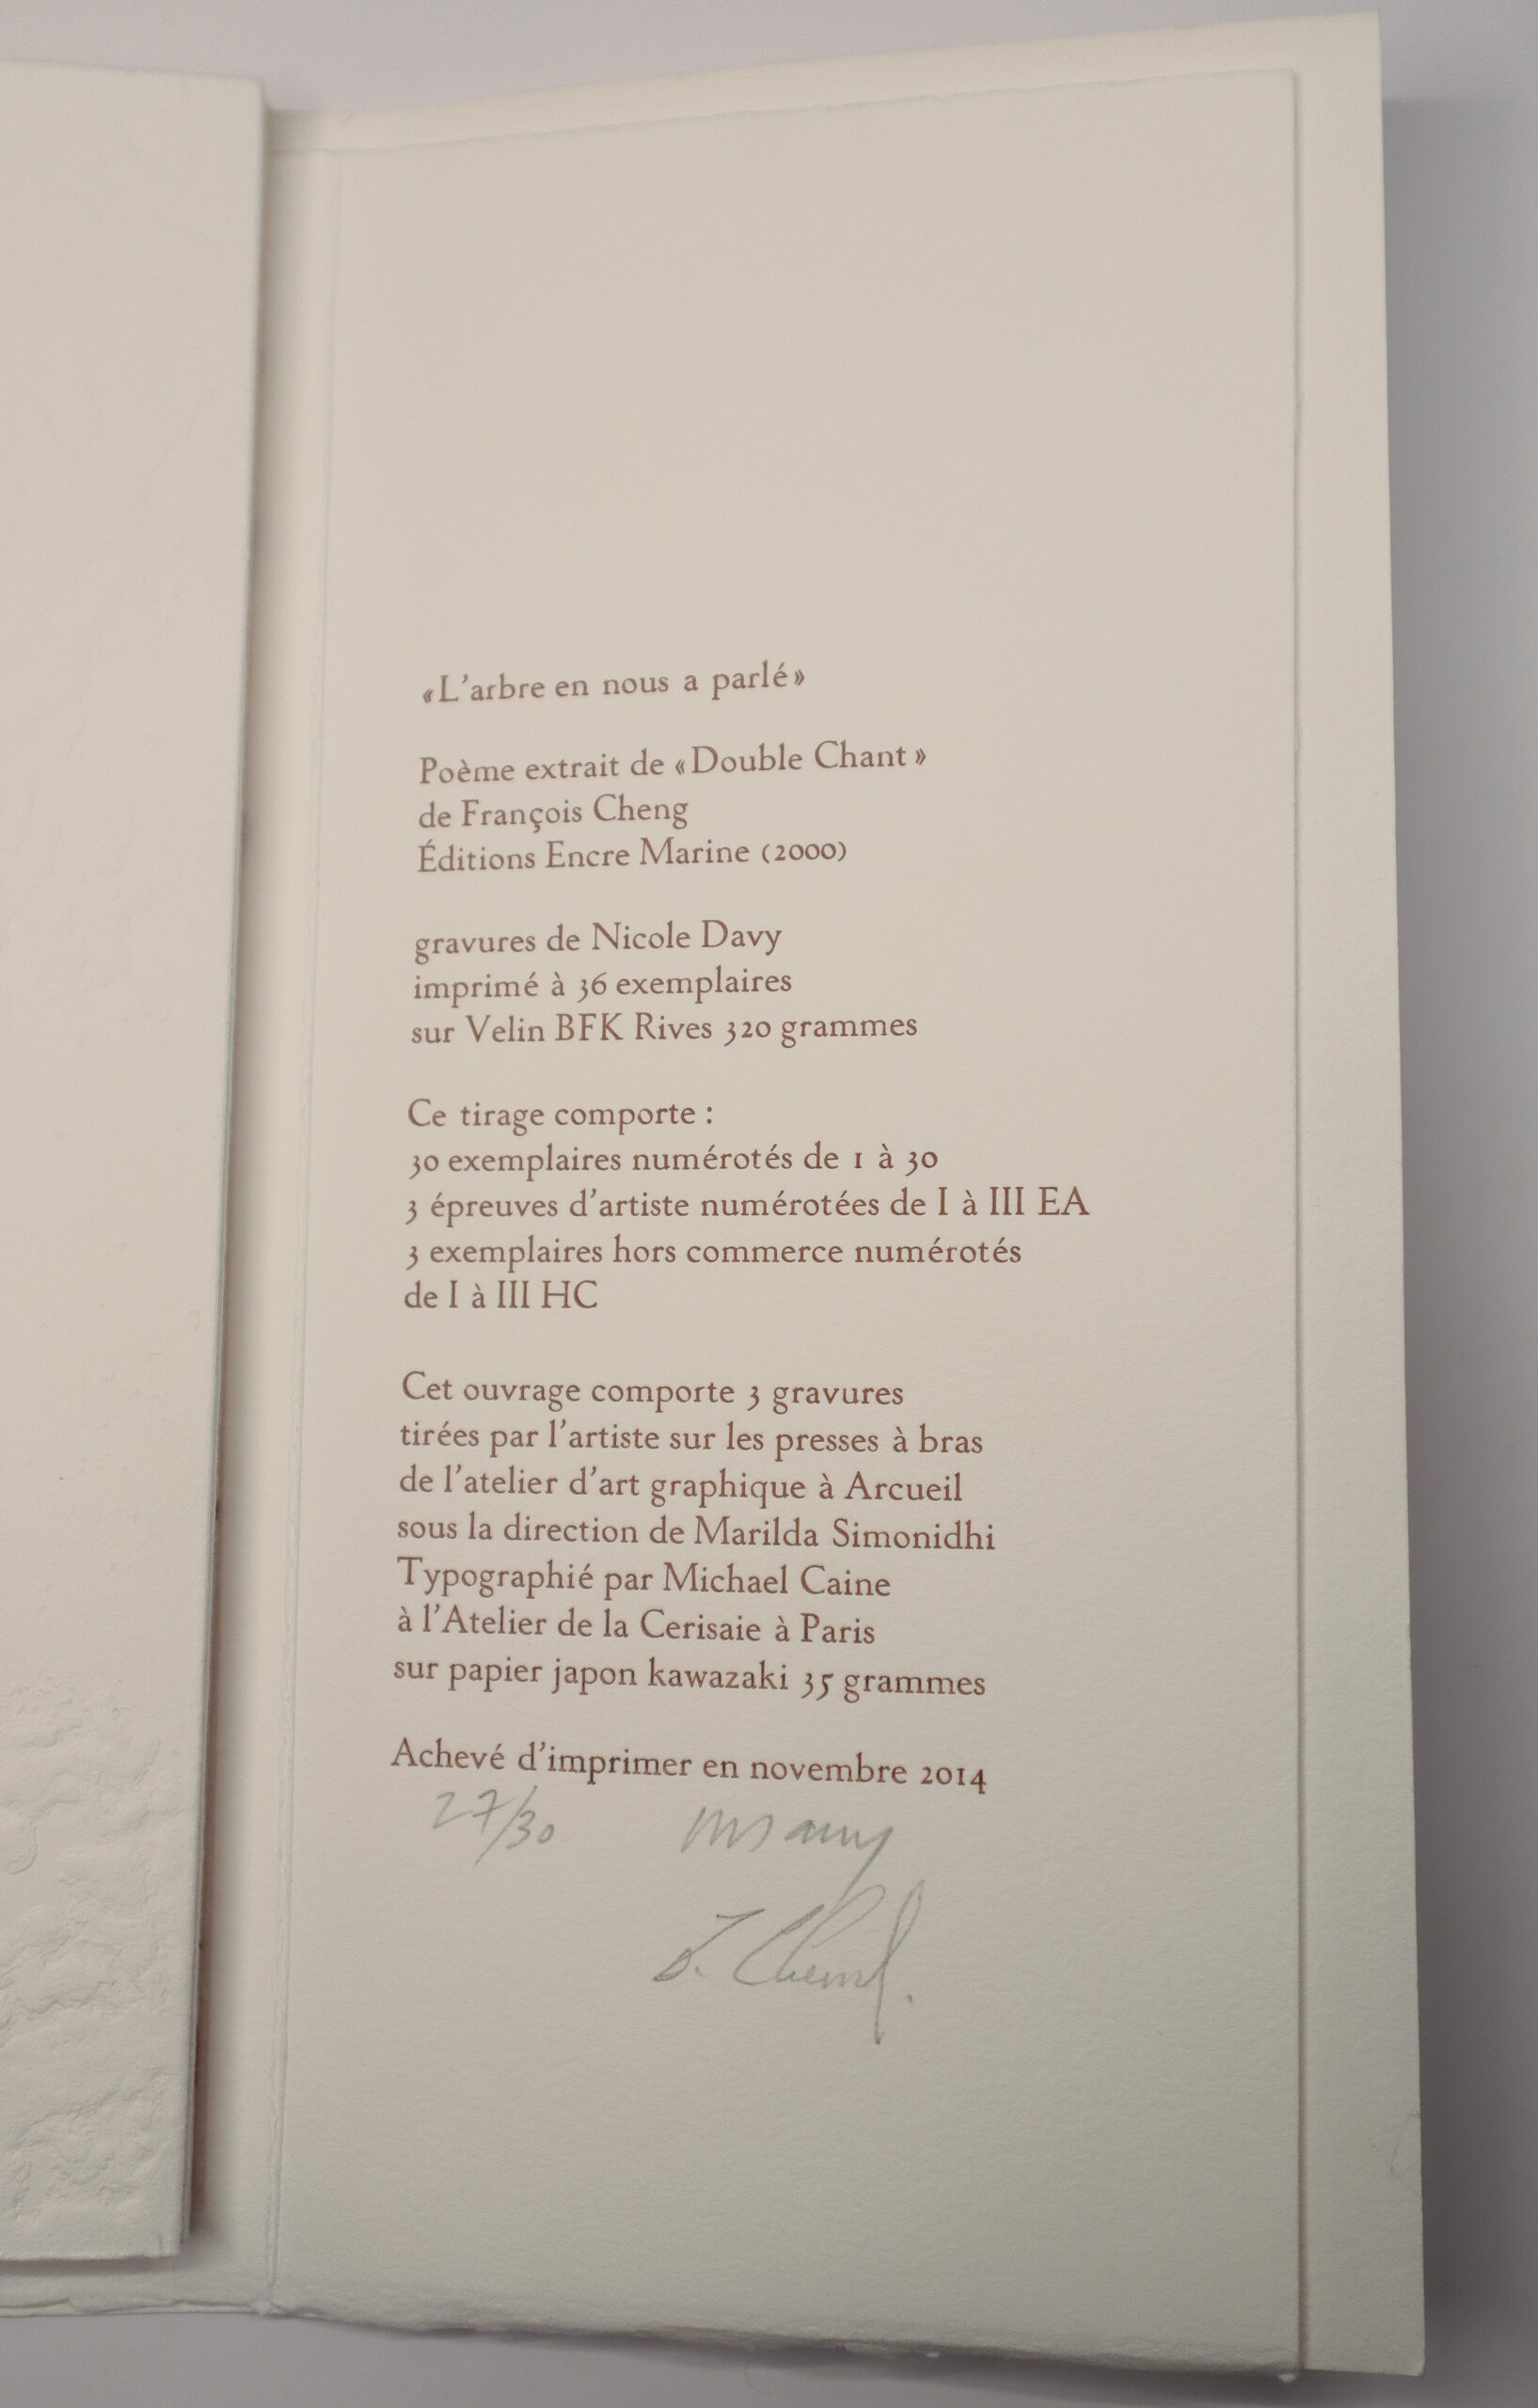 «L'arbre en nous a parlé»
Poème extrait de «Double Chant»
de François Cheng
Éditions Encre Marine (2000)
gravures de Nicole Davy
imprimé à 36 exemplaires
sur Velin BFK Rives 320 grammes
Ce tirage comporte :
30 exemplaires numérotés de 1 à 30
3 épreuves d'artiste numérotées de I à III EA
3 exemplaires hors commerce numérotés
de I à III HC
Cet ouvrage comporte 3 gravures
tirées par l'artiste sur les presses à bras
de l'atelier d'art graphique à Arcueil
sous la direction de Marilda Simonidhi
Typographié par Michael Caine
à l'Atelier de la Cerisaie à Paris
sur papier japon kawazaki 35 grammes
Achevé d'imprimer en novembre 2014
27/30